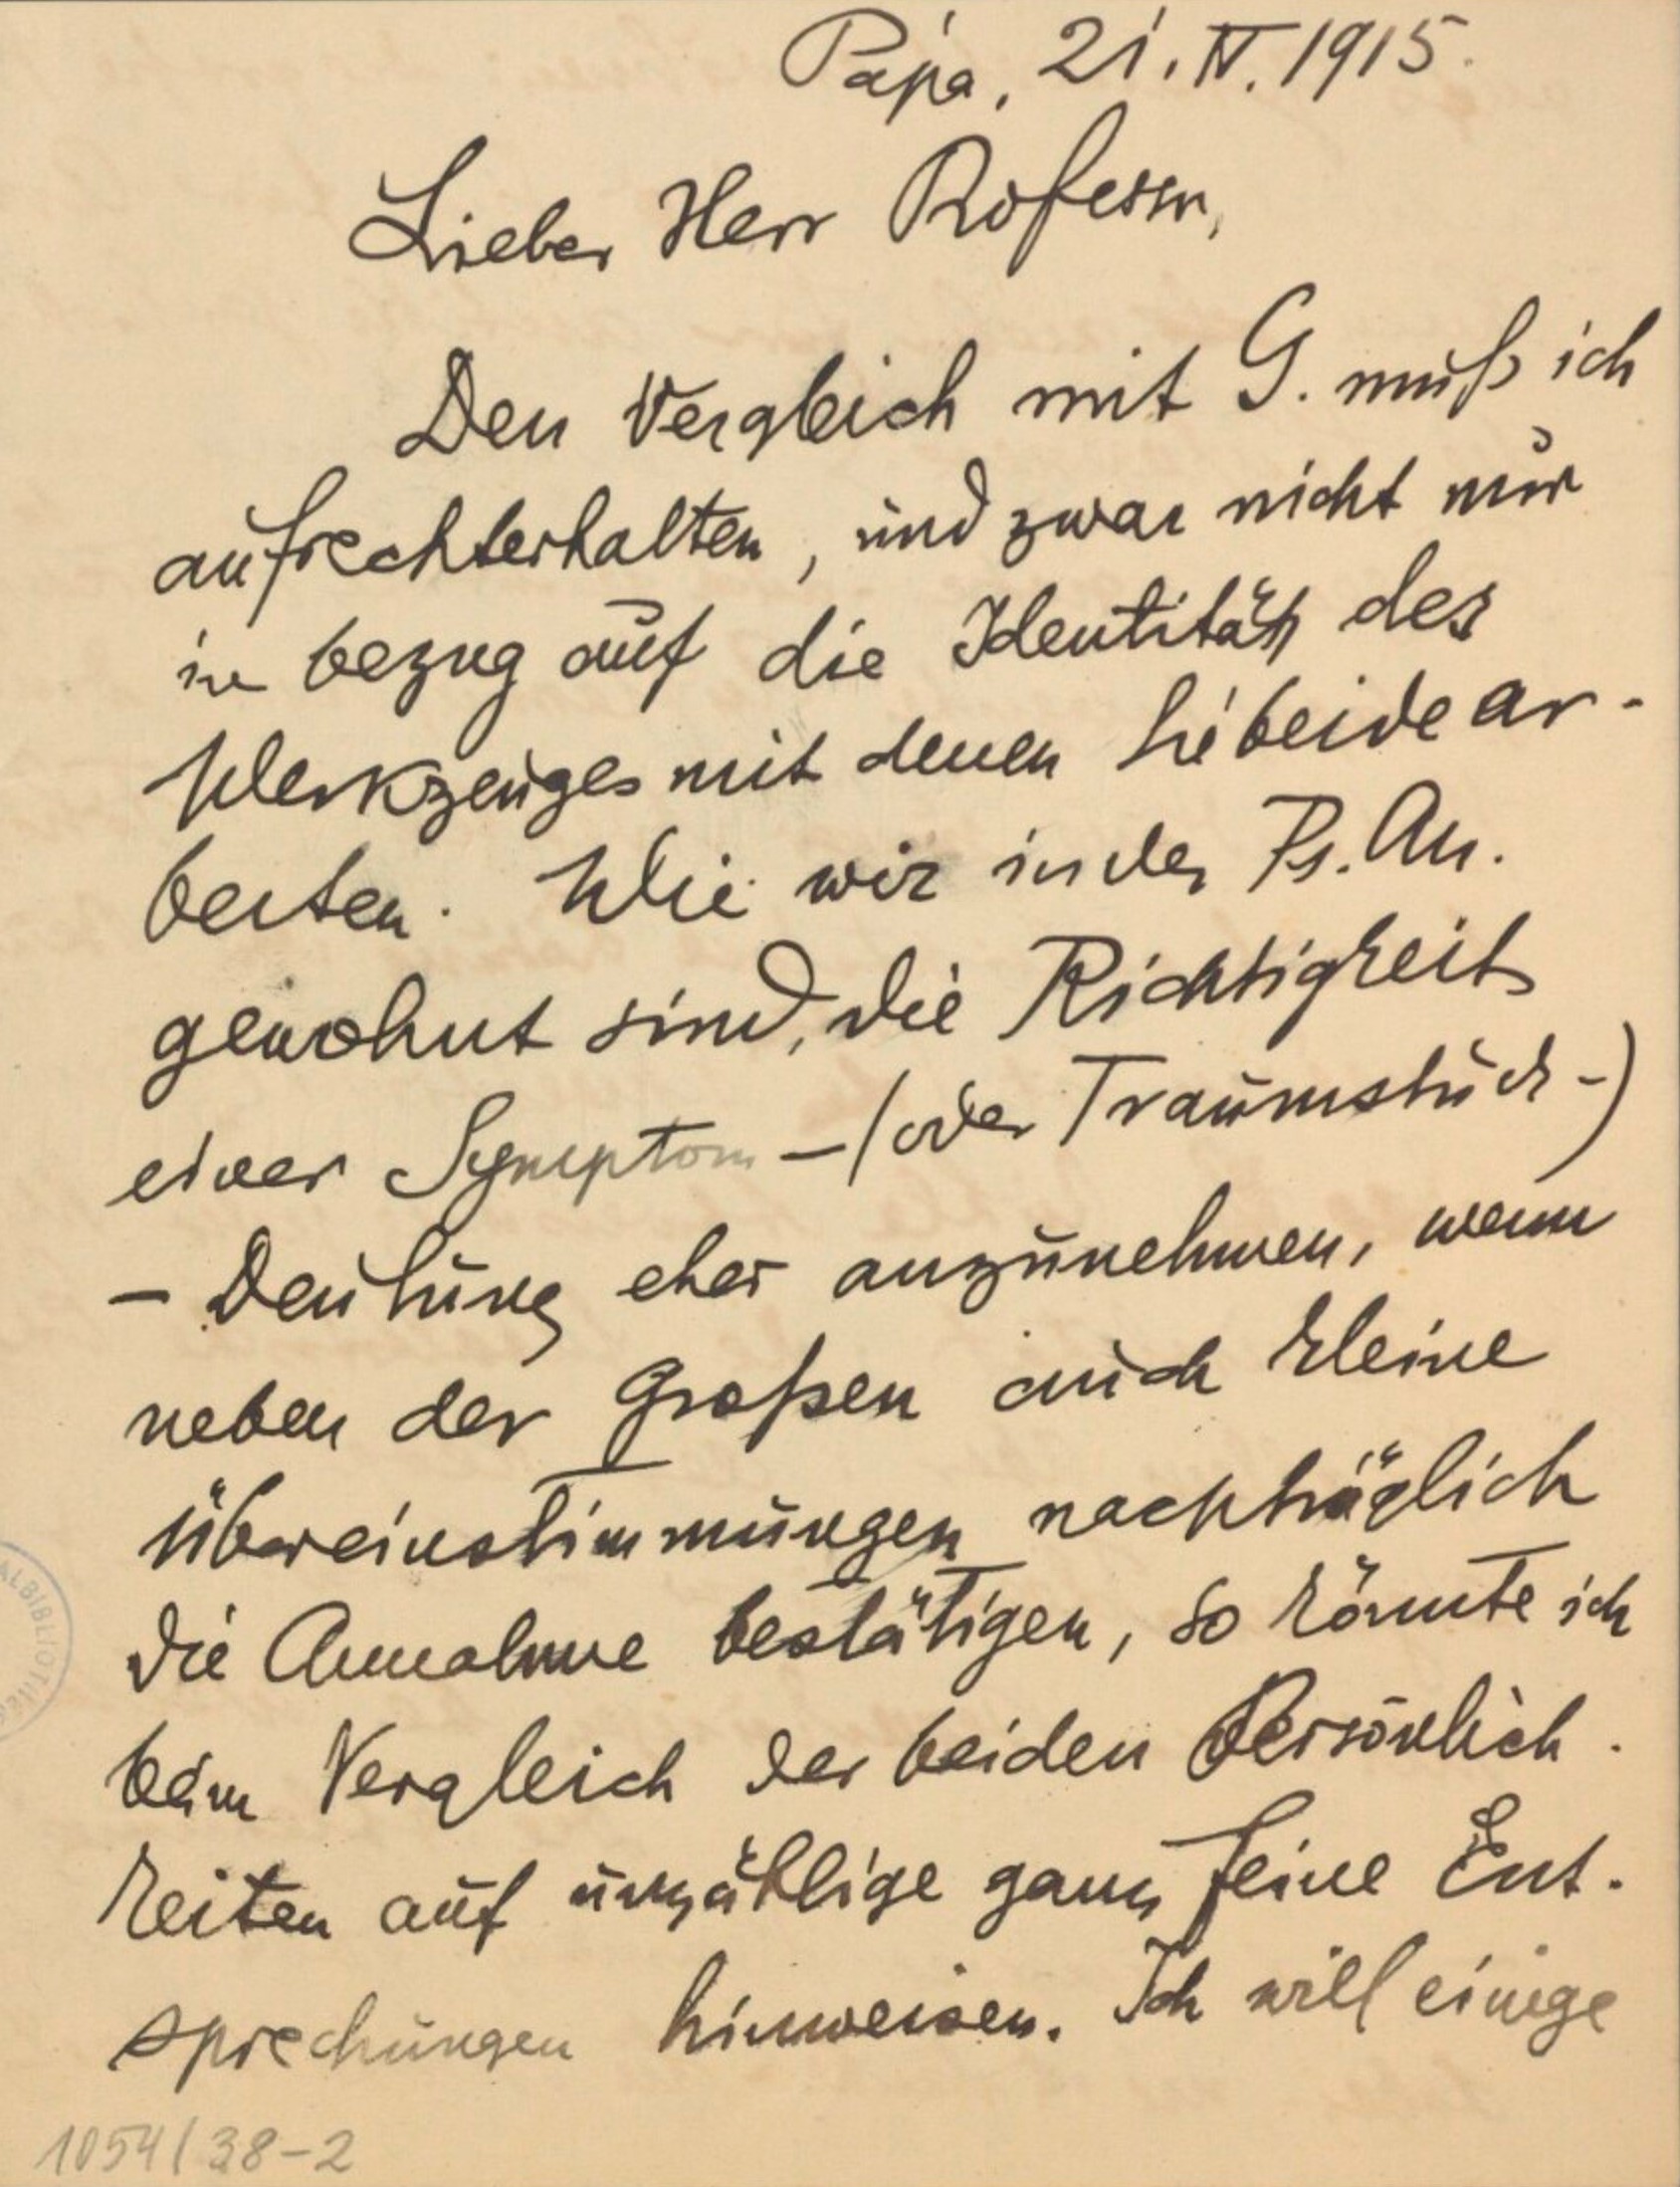 Pápa, 21. IV. 1915.
Lieber Herr Professor,
Den Vergleich mit G. muß ich
aufrechterhalten, und zwar nicht nur
in bezug auf die Identität des
Werkzeuges mit denen Sie beide ar-
beiten. Wie wir in der Ps. An.
gewohnt sind, die Richtigkeit
einer Symptom-(oder Traumstück-)
-Deutung eher anzunehmen, wenn
neben der Großen auch kleine
Übereinstimmungen nachträglich
die Annahme bestätigen, so könnte ich
beim Vergleich der beiden Persönlich-
keiten auf unzählige ganz feine Ent-
sprechungen hinweisen. Ich will einige
1054/38-2
ALBIBLIOTHEK